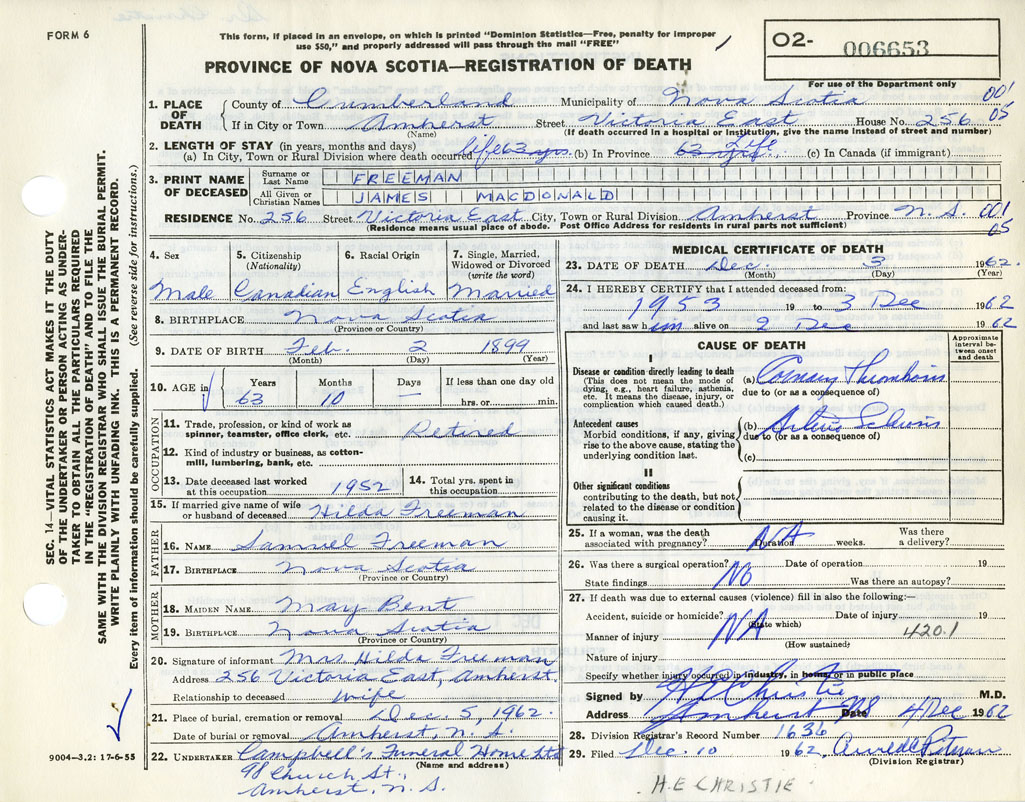 FORM 6
This form, if placed in an envelope, on which is printed "Dominion Statistics—Free, penalty for improper
use $50," and properly addressed will pass through the mail "FREE"
O2- 006653
For use of the Department only
PROVINCE OF NOVA SCOTIA—REGISTRATION OF DEATH
SEC. 14—VITAL STATISTICS ACT MAKES IT THE DUTY
OF THE UNDERTAKER OR PERSON ACTING AS UNDER-
TAKER TO OBTAIN ALL THE PARTICULARS REQUIRED
IN THE "REGISTRATION OF DEATH" AND TO FILE THE
SAME WITH THE DIVISION REGISTRAR WHO SHALL ISSUE THE BURIAL PERMIT.
WRITE PLAINLY WITH UNFADING INK. THIS IS A PERMANENT RECORD.
Every item of information should be carefully supplied. (See reverse side for instructions.)
9004—3,2: 17-6-55
1. PLACE OF DEATH
County of Cumberland Municipality of Nova Scotia 001
If in City or Town Amherst Street Victoria East House No. 256 05
(Name) (If death occurred in a hospital or institution, give the name instead of street and number)
2. LENGTH OF STAY (in years, months and days)
(a) In City, Town or Rural Division where death occurred life 63 yrs. (b) In Province 63 Life (c) In Canada (if immigrant)
3. PRINT NAME OF DECEASED
Surname or Last Name FREEMAN
All Given or Christian Names JAMES MACDONALD
RESIDENCE No. 256 Street Victoria East City, Town or Rural Division Amherst Province N. S. 001
(Residence means usual place of abode. Post Office Address for residents in rural parts not sufficient) 05
4. Sex Male
5. Citizenship (Nationality) Canadian
6. Racial Origin English
7. Single, Married, Widowed or Divorced (write the word) Married
8. BIRTHPLACE Nova Scotia
(Province or Country)
9. DATE OF BIRTH Feb. 2 1899
(Month) (Day) (Year)
10. AGE in Years 63 Months 10 Days — If less than one day old hrs. or min.
OCCUPATION
11. Trade, profession, or kind of work as spinner, teamster, office clerk, etc. Retired
12. Kind of industry or business, as cotton-mill, lumbering, bank, etc.
13. Date deceased last worked at this occupation 1952
14. Total yrs. spent in this occupation
15. If married give name of wife or husband of deceased Hilda Freeman
FATHER
16. NAME Samuel Freeman
17. BIRTHPLACE Nova Scotia
(Province or Country)
MOTHER
18. MAIDEN NAME May Bent
19. BIRTHPLACE Nova Scotia
(Province or Country)
20. Signature of informant Mrs. Hilda Freeman
Address 256 Victoria East, Amherst.
Relationship to deceased wife
21. Place of burial, cremation or removal Dec. 5, 1962.
Date of burial or removal Amherst, N. S.
22. UNDERTAKER Campbell's Funeral Home Ltd
(Name and address)
98 Church St.,
Amherst, N. S.
MEDICAL CERTIFICATE OF DEATH
23. DATE OF DEATH Dec. 3 1962.
(Month) (Day) (Year)
24. I HEREBY CERTIFY that I attended deceased from:
1953 19 to 3 Dec 1962
and last saw him alive on 2 Dec 1962
CAUSE OF DEATH
Approximate interval between onset and death
I
Disease or condition directly leading to death
(This does not mean the mode of dying, e.g., heart failure, asthenia, etc. It means the disease, injury, or complication which caused death.)
(a) Coronary Thrombosis
due to (or as a consequence of)
Antecedent causes
Morbid conditions, if any, giving rise to the above cause, stating the underlying condition last.
(b) Arterio Sclerosis
due to (or as a consequence of)
(c)
II
Other significant conditions
contributing to the death, but not related to the disease or condition causing it.
25. If a woman, was the death associated with pregnancy? NA Duration weeks. Was there a delivery?
26. Was there a surgical operation? No Date of operation 19
State findings Was there an autopsy?
27. If death was due to external causes (violence) fill in also the following:—
Accident, suicide or homicide? NA Date of injury 19
(State which)
Manner of injury 420.1
(How sustained)
Nature of injury
Specify whether injury occurred in industry, in home, or in public place
Signed by H E Christie M.D.
Address Amherst NS Date 4 Dec 1962
28. Division Registrar's Record Number 1636
29. Filed Dec. 10 1962
(Division Registrar)
H.E CHRISTIE